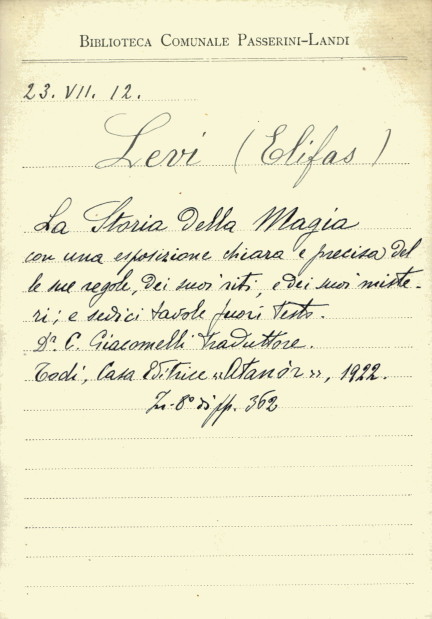 BIBLIOTECA COMUNALE PASSERINI-LANDI
23. VII. 12.
Levi (Elifas)
La Storia della Magia
con una esposizione chiara e precisa del
le sue regole, dei suoi riti, e dei suoi miste-
ri; e sedici tavole fuori testo.
Dr. C. Giacomelli traduttore.
Todi, Casa Editrice «Atanòr», 1922.
In-8° di pp. 362